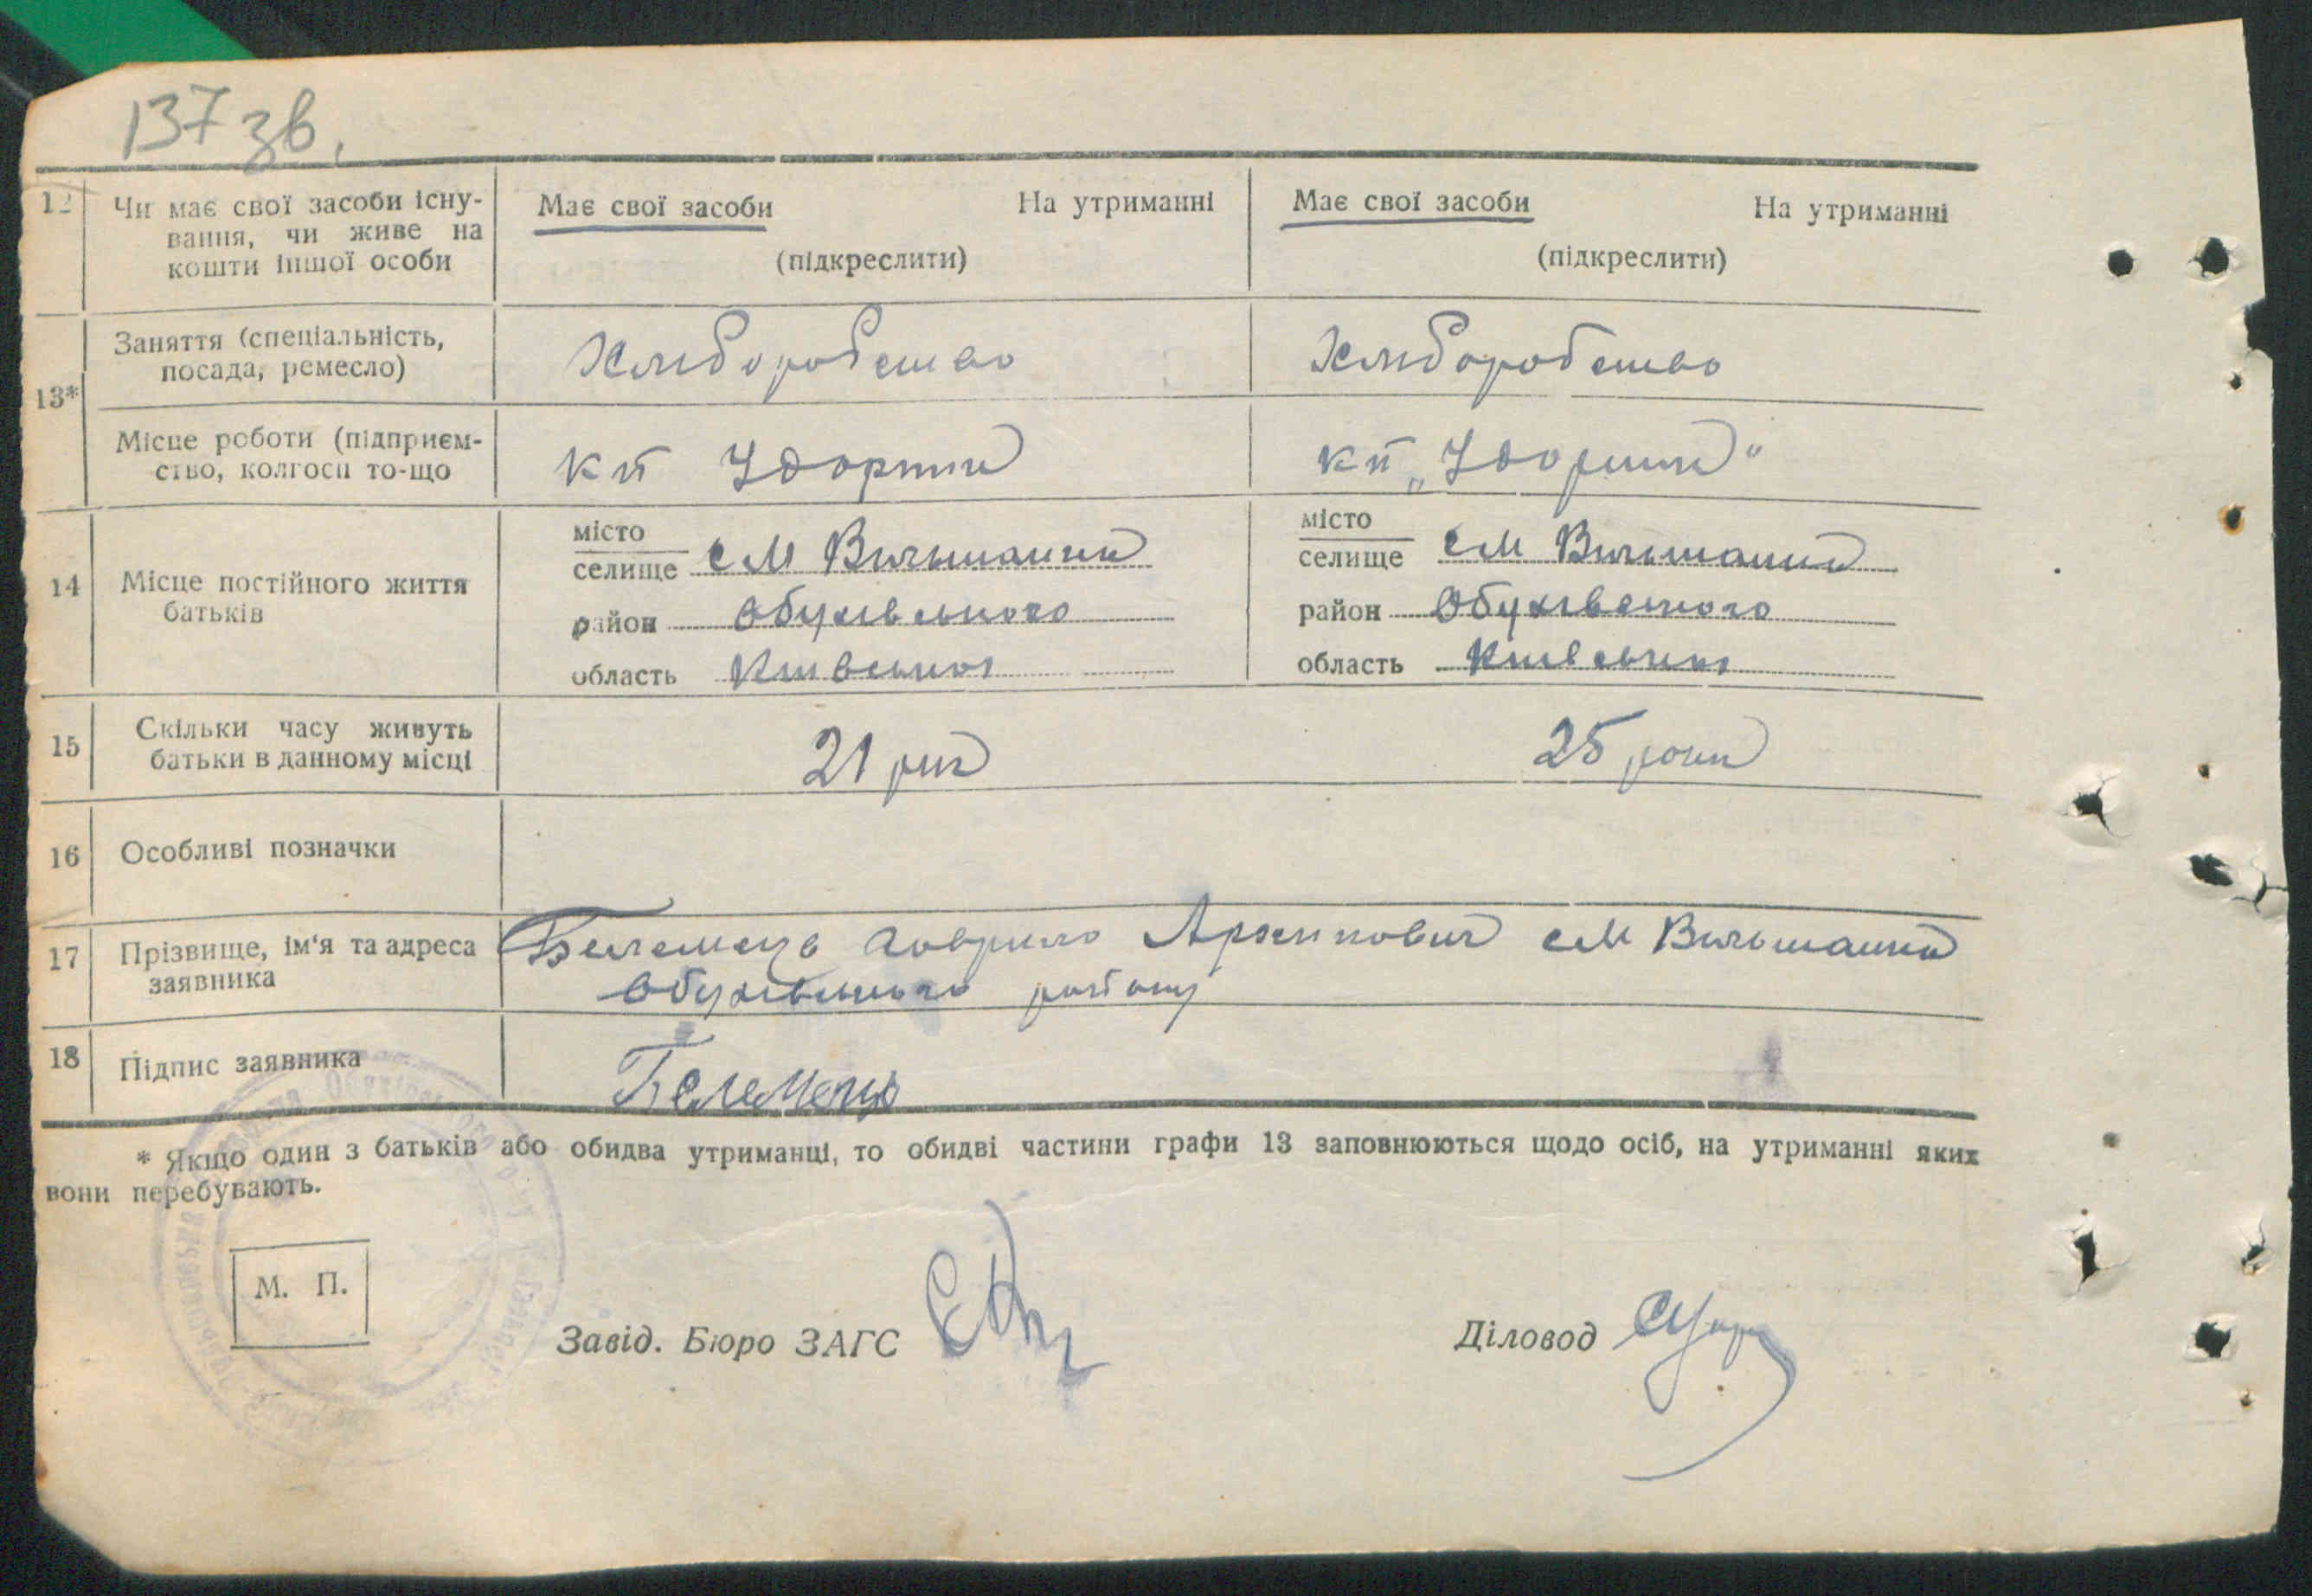 137 зв.
12 Чи має свої засоби існу- Має свої засоби На утриманні Має свої засоби На утриманні
вання, чи живе на
кошти іншої особи (підкреслити) (підкреслити)
13* Заняття (спеціальність, Хліборобство Хліборобство
посада, ремесло)
Місце роботи (підприєм- кп кп
ство, колгосп то-що
14 Місце постійного життя місто місто
батьків селище см Вильшанки селище см Вильшанки
район Обухівського район Обухівського
область Київської область Київської
15 Скільки часу живуть 21 рік 25 роки
батьки в данному місці
16 Особливі позначки
17 Прізвище, ім'я та адреса Архипович см Вильшанки
заявника Обухівського району
18 Підпис заявника
* Якщо один з батьків або обидва утриманці, то обидві частини графи 13 заповнюються щодо осіб, на утриманні яких
вони перебувають.
М. П.
Завід. Бюро ЗАГС Діловод